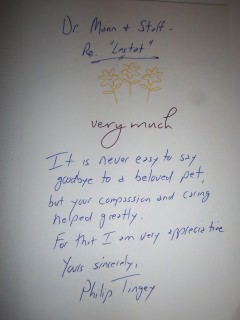 Dr. Mann + Staff -
Re. "Lestat"
very much
It is never easy to say
goodbye to a beloved pet,
but your compassion and caring
helped greatly.
For that I am very appreciative
Yours sincerely,
Philip Tingey